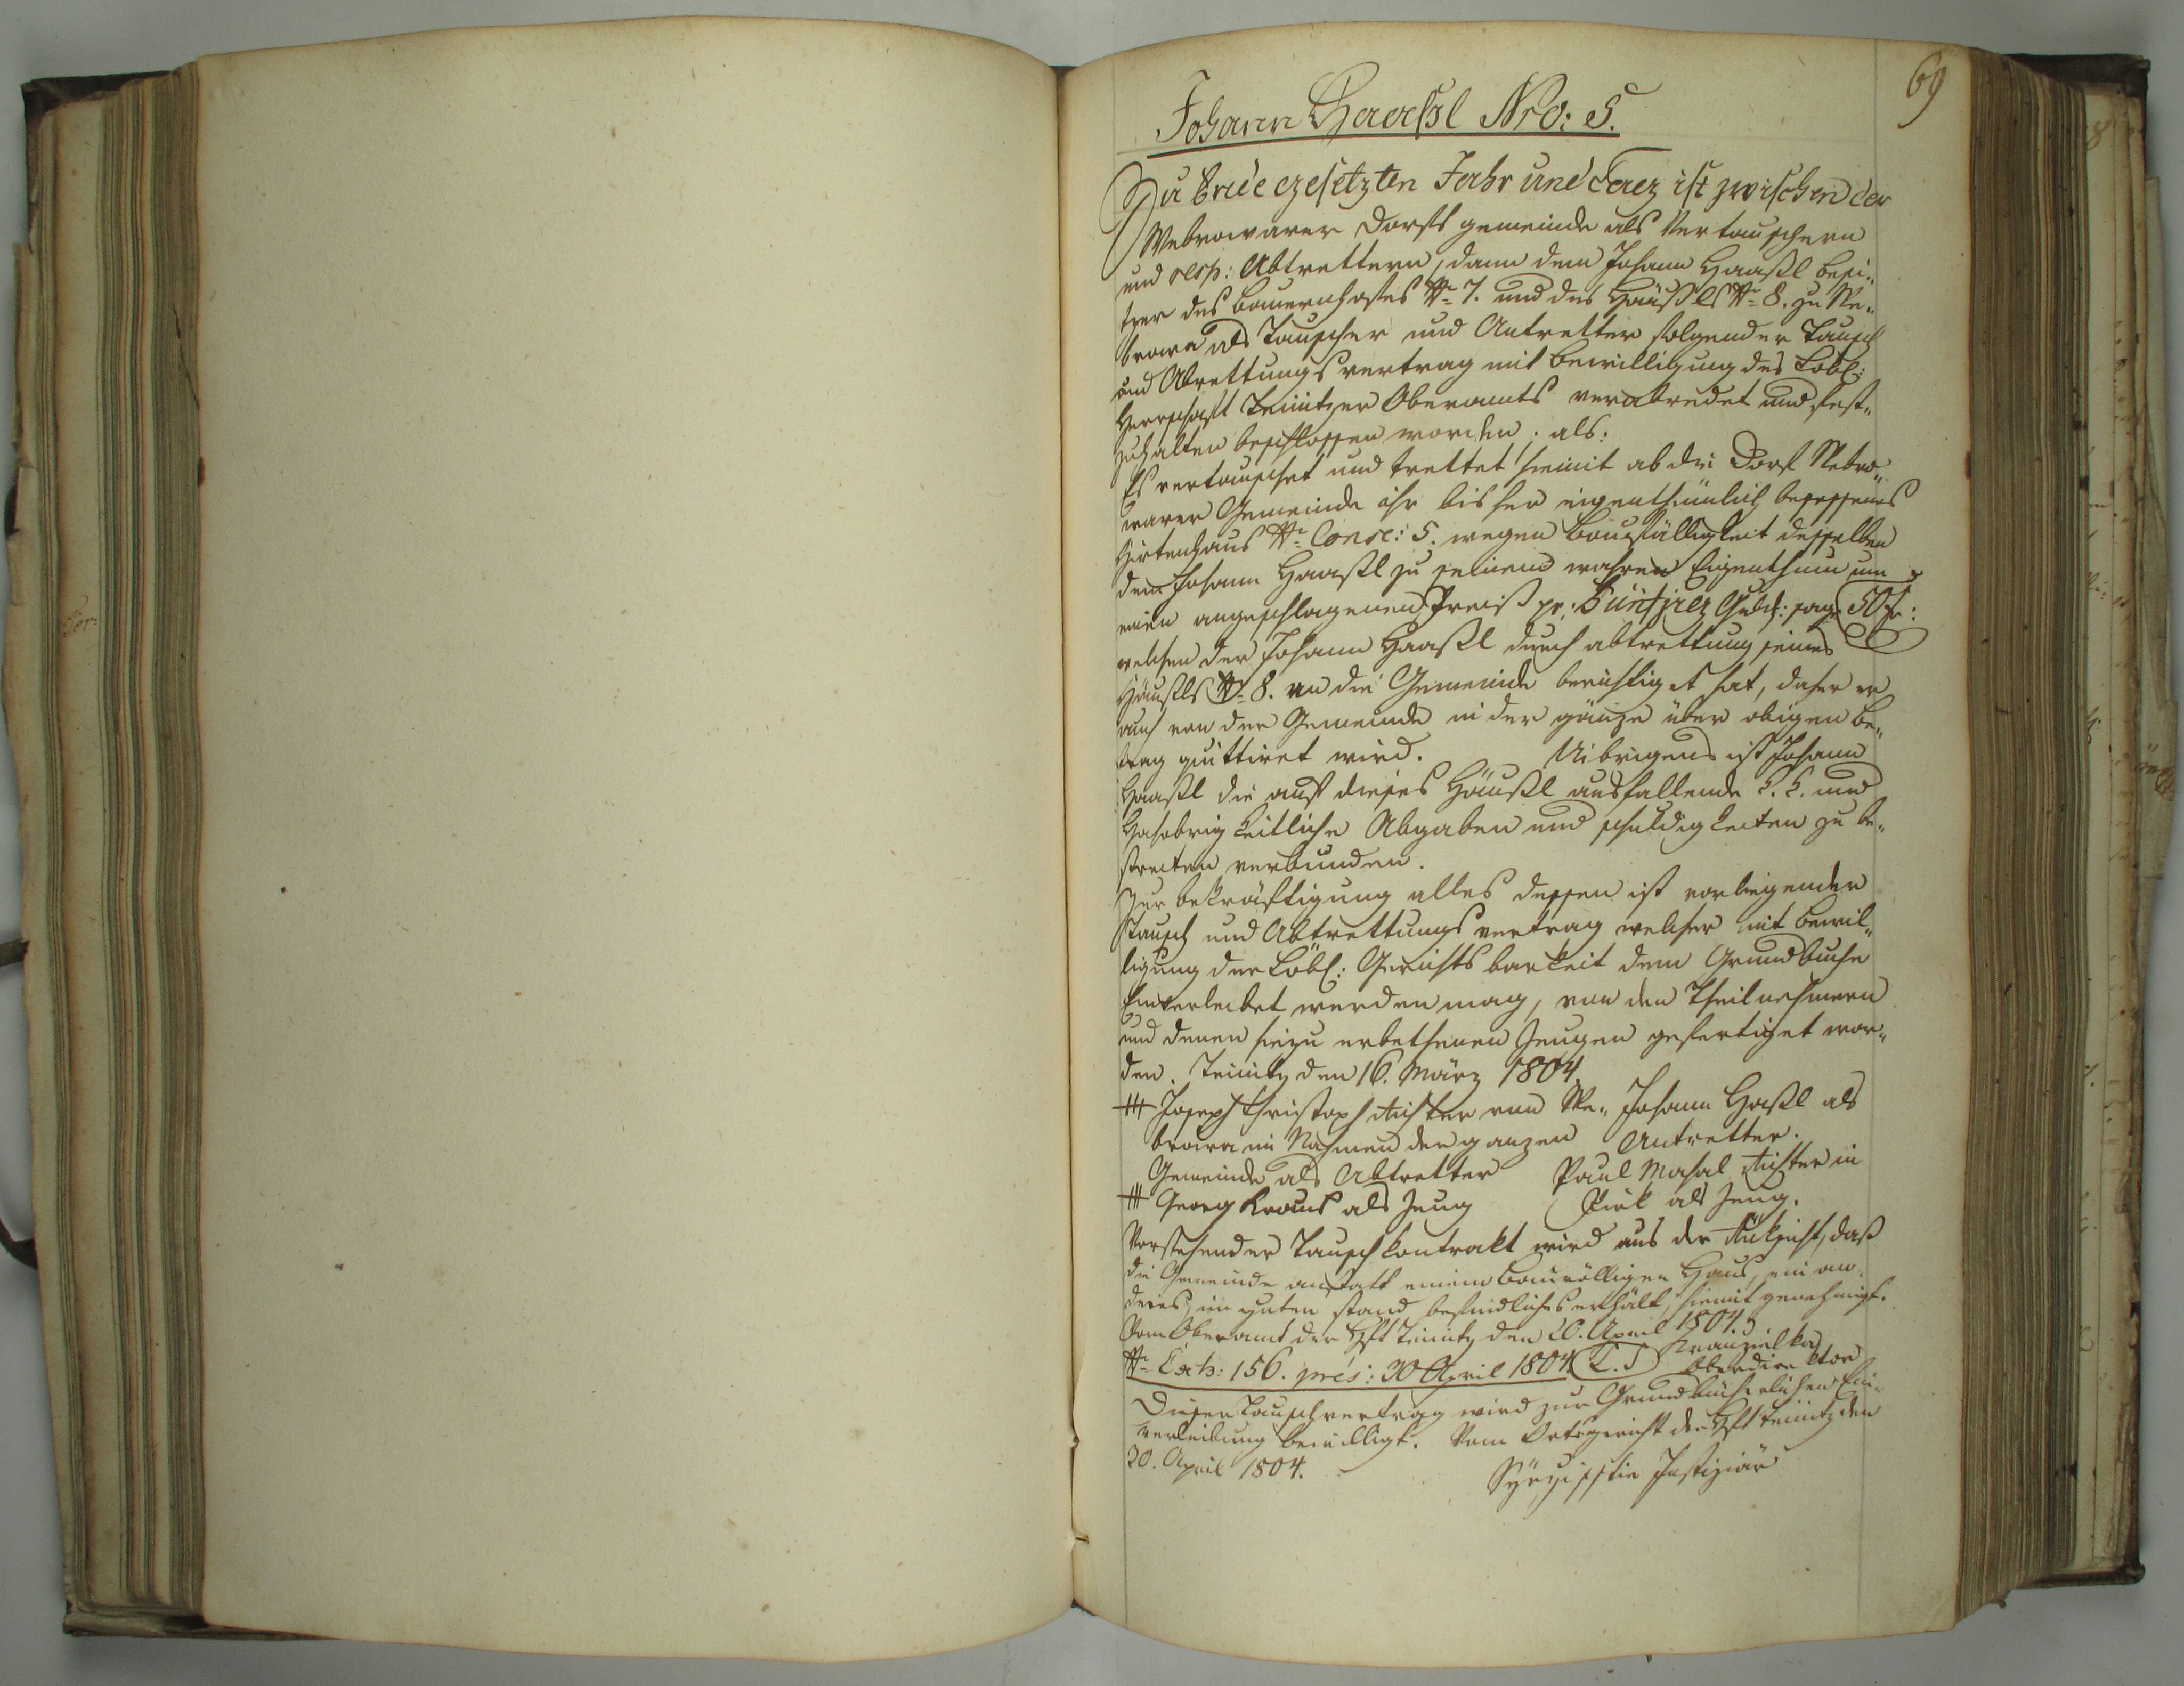 69
Johann Haaßl Nro: 5.
Zu Ende gesetzten Jahr und Tag ist zwischen der
Webrowarer Dorfs gemeinde als Vertauschern
und resp: Abtrettern, dann dem Johann Haaßl besi„
tzer des Bauernhofes No 7. und des Häußls No 8. zu We„
browa als Tauscher und Antretter folgender Tausch
und Abtrettungs vertrag mit Bewilligung des Löbl:
Herrschaft Teinitzer Oberamts verabredet und fest„
zuhalten beschlossen worden; als:
Es vertauschet und trettet hiemit ab die Dorf Webro„
warer Gemeinde ihr bisher eigenthümlich besessenes
Hirtenhaus No Consc: 5. wegen Baufälligkeit desselben
dem Johann Haaßl zu seinem wahren Eigenthum um
einen angeschlagenen Preiß pr: Fünfzig Guld: sag: 50 fr:
welchen der Johann Haaßl durch abtrettung seines
Häußls No 8. an die Gemeinde berichtiget hat, daher er
auch von der Gemeinde in der gänze über obigen Be„
trag quittiret wird. Uibrigens ist Johann
Haaßl die auf dieses Häußl ausfallende k. k. und
Hochobrigkeitliche Abgaben und schuldigkeiten zu be„
streiten verbunden.
Zur bekräftigung alles dessen ist vorliegender
Tausch und Abtrettungs vertrag welcher mit Bewil„
ligung der Löbl: Gerichtsbarkeit dem Grundbuche
Einverleibet werden mag, von den Theilnehmern
und denen hiezu erbethenen Zeugen gefertiget wor„
den. Teinitz den 16. März 1804.
+++ Joseph Christoph Richter von We„ Johann Haßl als
browa im Nahmen der ganzen Antretter.
Gemeinde als Abtretter Paul Masal Richter in
+++ Georg Kraus als Zeug Pirk als Zeug.
Vorstehender Tausch kontrakt wird aus der Rüksicht, daß
die Gemeinde anstatt einem Baufälligen Haus, ein an„
deres, im guten stand befindliches erhält, hiemit genehmigt.
Vom Oberamt der Hft Teinitz den 20. April 1804.
No Exh: 156. prés: 30 April 1804. (L.S) Oberdirektor
Dieser Tauschvertrag wird zur Grundbücherlichen Ein„
verleibung bewilligt. Vom Ortsgericht der Hft Teinitz den
30. April 1804.
Justiziär